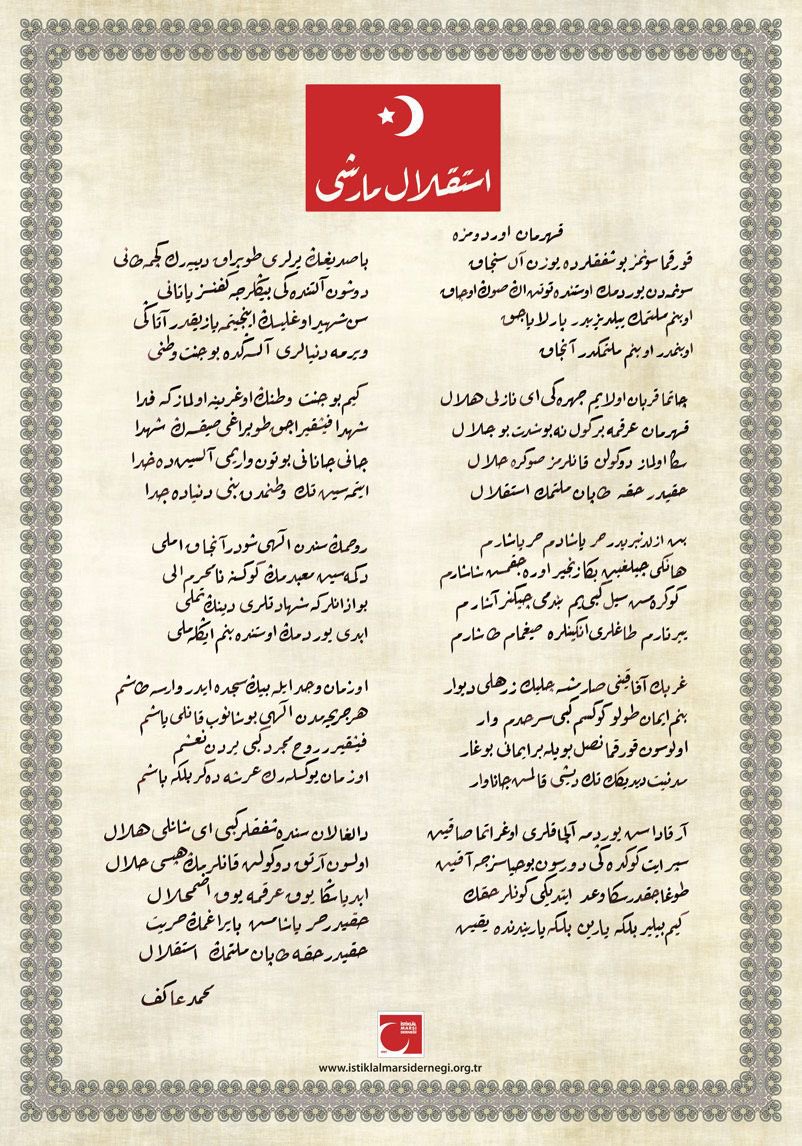 استقلال مارشی
قهرمان اوردومزه
قورقما سونمز بو شفقلرده یوزن آل سنجاق
سونمه‌دن یوردمك اوستنده توتن اڭ صوڭ اوجاق
او بنم ملتمك ییلدیزیدر پارلایاجق
او بنمدر او بنم ملتمكدر آنجاق
چاتما قربان اولایم چهره‌كی ای نازلی هلال
قهرمان عرقمه بر گول نه بو شدت بو جلال
سڭا اولماز دوكولن قانلرمز صوڭره حلال
حقیدر حقه طاپان ملتمك استقلال
بن ازلدنبریدر حر یاشادم حر یاشارم
هانكی چیلغین بڭا زنجیر اوره‌جقمش شاشارم
كوكره‌مش سیل كبی‌یم بندمی چیكنر آشارم
ییرتارم طاغلری انكینلره صیغمام طاشارم
غربك آفاقنی صارمشسه چلیك زرهلی دیوار
بنم ایمان طولو كوكسم كبی سرحدم وار
اولوسون قورقما نصل بویله بر ایمانی بوغار
مدنیت دیدیكك تك دیشی قالمش جاناوار
آرقاداش یوردمه آلچاقلری اوغراتما صاقین
سپر ایت كوكده‌كی دورسون بو حیاسزجه آقین
طوغاجقدر سڭا وعد ایتدیكی كونلر حقك
كیم بیلیر بلكه یارین بلكه یاریندنده یقین
باصدیغك یرلری طوپراق دییه‌رك كچمه طانی
دوشون آلتنده‌كی بیڭلرجه كفنسز یاتانی
سن شهید اوغلیسك اینجیتمه یازیقدر آتاكی
ویرمه دنیالری آلسه‌كده بو جنت وطنی
كیم بو جنت وطنك اوغرینه اولماز كه فدا
شهدا فیشقیراجق طوپراغی صیقسه‌ڭ شهدا
جانی جانانی بوتون واریمی آلسین ده خدا
ایتمه‌سین تك وطنمدن بنی دنیاده جدا
روحمك سندن الهی شودر آنجاق املی
دكمه‌سین معبدمك كوكسنه نامحرم الی
بو اذانلر كه شهادتلری دینك تملی
ابدی یوردمك اوستنده بنم ایڭله‌ملی
او زمان وجد ایله بیك سجده ایدر وارسه طاشم
هر جریحه‌مدن الهی بوشانوب قانلی یاشم
فیشقیرر روح مجرد كبی یردن نعشم
او زمان یوكسله‌رك عرشه دكر بلكه باشم
دالغالان سنده شفقلر كبی ای شانلی هلال
اولسون آرتق دوكولن قانلرمك هپسی حلال
ابدیا سڭا یوق عرقمه یوق اضمحلال
حقیدر حر یاشامش بایراغمك حریت
حقیدر حقه طاپان ملتمك استقلال
محمد عاكف
İSTİKLÂL
MARŞI
DERNEĞİ
www.istiklalmarsidernegi.org.tr